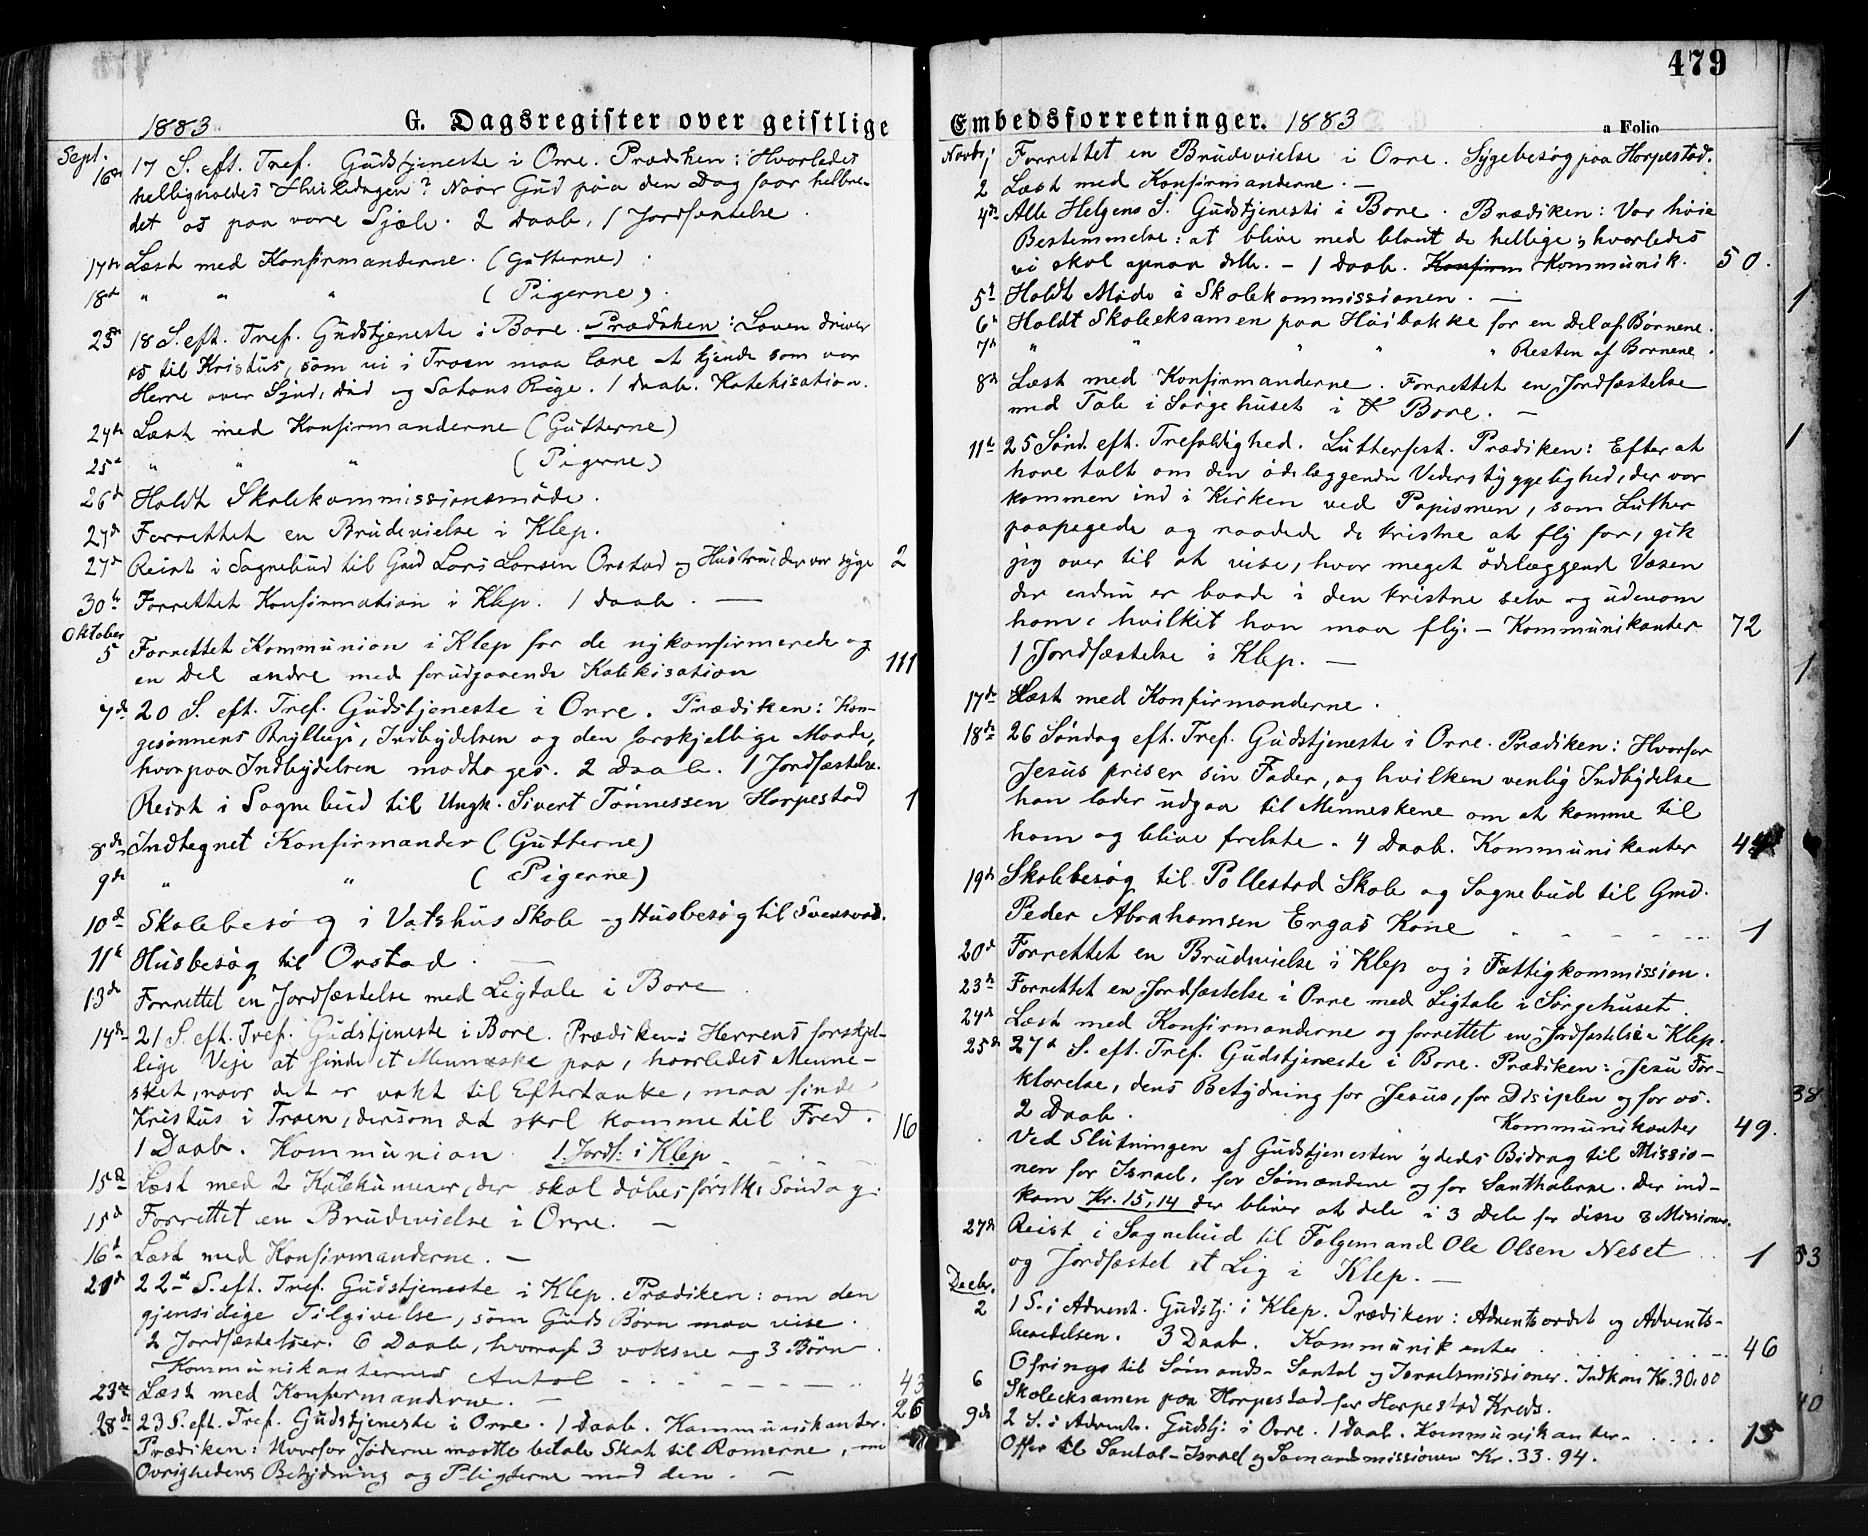 479
1883. G. Dagsregister over geistlige
Sept. 16de 17 S. eft. Tref. Gudstjeneste i Orre. Prædiken: Hvorledes
helligholdes Hviledagen? Naar Gud paa den Dag faar helbre-
det os paa vore Sjæle. 2 Daab, 1 Jordfæstelse.
17de Læst med Konfirmanderne. (Gutterne)
18de " " " (Pigerne).
23de 18 S. eft. Tref. Gudstjeneste i Bore. Prædiken: Loven driver
os til Kristus, som vi i Troen maa lære at kjende som vor
Herre over Synd, Død og Satans Rige. 1 Daab. Katekisation.
24de Læst med Konfirmanderne (Gutterne)
25de " " " (Pigerne)
26de Holdt Skolekommissionsmøde.
27de Forrettet en Brudevielse i Klep.
27de Reist i Sognebud til Gmd Lars Larsen Orstad og Hustru, der var syge 2
30te Forrettet Konfirmation i Klep. 1 Daab. —
Oktober
5 Forrettet Kommunion i Klep for de nykonfirmerede og
en Del andre med forudgaaende Katekisation 111
7de 20 S. eft. Tref. Gudstjeneste i Orre. Prædiken: Kon-
gesønnens Bryllup, Indbydelsen og den forskjellige Maade,
hvorpaa Indbydelsen modtages. 2 Daab. 1 Jordfæstelse.
Reist i Sognebud til Ungk. Sivert Tønnessen Horpestad 1
8de Indtegnet Konfirmander (Gutterne)
9de " " (Pigerne)
10de Skolebesøg i Vatshus Skole og Husbesøg til
11te Husbesøg til Orstad. —
13de Forrettet en Jordfæstelse med Ligtale i Bore
14de 21 S. eft. Tref. Gudstjeneste i Bore. Prædiken: Herrens forskjel-
lige Veje at finde et Menneske paa, hvorledes Menne-
sket, naar det er vakt til Eftertanke, maa finde
Kristus i Troen, dersom det skal komme til Fred. 16
1 Daab. Kommunion. 1 Jordf. i Klep
15de Læst med 2 Katekumener, der skal døbes førstk. Søndag.
15de Forrettet en Brudevielse i Orre. —
16de Læst med Konfirmanderne. —
21de 22de S. eft. Tref. Gudstjeneste i Klep. Prædiken: om den
gjensidige Tilgivelse, som Guds Børn maa vise.
2 Jordfæstelser. 6 Daab, hvoraf 3 voksne og 3 Børn
Kommunikanternes Antal 43
23de Læst med Konfirmanderne. —
28de 23 S. eft. Tref. Gudstjeneste i Orre. 1 Daab. Kommunikanter. 26
Prædiken: Hvorfor Jøderne maatte betale Skat til Romerne, om
Øvrighedens Betydning og Pligterne mod den. —
Embedsforretninger. 1883 a Folio
Novbr. 1 Forrettet en Brudevielse i Orre. Sygebesøg paa Horpestad.
2 Læst med Konfirmanderne. —
4de Alle Helgens S. Gudstjeneste i Bore. Prædiken: Vor høie
Bestemmelse: at blive med blant de hellige; hvorledes
vi skal opnaa dette. — 1 Daab. Konfirm Kommunik. 50.
5te Holdt Møde i Skolekommissionen. — 1
6te Holdt Skoleeksamen paa Haibakke for en Del af Børnene.
7de " " " " " Resten af Børnene.
8de Læst med Konfirmanderne. Forrettet en Jordfæstelse
med Tale i Sørgehuset i K Bore. —
11te 25 Sønd. eft. Trefoldighed. Lutherfest. Prædiken: Efter at 1
have talt om den ødelæggende Vederstyggelighed, der var
kommen ind i Kirken ved Papismen, som Luther
paapegede og raadede de kristne at fly for, gik
jeg over til at vise, hvor meget ødelæggende Væsen
der endnu er baade i den kristne selv og udenom
ham, hvilket han maa fly. — Kommunikanter 72
1 Jordfæstelse i Klep. — 1
17de Læst med Konfirmanderne.
18de 26 Søndag eft. Tref. Gudstjeneste i Orre. Prædiken: Hvorfor
Jesus priser sin Fader, og hvilken venlig Indbydelse
han lader udgaa til Menneskene om at komme til
ham og blive frelste. 4 Daab. Kommunikanter 44
19de Skolebesøg til Pollestad Skole og Sognebud til Gmd.
Peder Abrahamsen Ergas Kone 1
20de Forrettet en Brudevielse i Klep og i Fattigkommission.
23de Forrettet en Jordfæstelse i Orre med Ligtale i Sørgehuset.
24de Læst med Konfirmanderne og forrettet en Jordfæstelse i Klep.
25de 27de S. eft. Tref. Gudstjeneste i Bore. Prædiken: Jesu For-
klarelse, dens Betydning for Jesus, for Disiplen og for os. 38
2 Daab. Kommunikanter 49.
Ved Slutningen af Gudstjenesten ydedes Bidrag til Missio-
nen for Israel, for Sømændene og for Santhalerne. Der ind-
kom Kr. 15,14 der bliver at dele i 3 Dele for disse 3 Missioner.
27de Reist i Sognebud til Folgemand Ole Olsen Neset 1 53
og Jordfæstet et Lig i Klep. —
Decbr.
2 1 S. i Advent. Gudstj. i Klep. Prædiken: Adventsordet og Advents-
beredelsen. 3 Daab. Kommunikanter 46
Ofringe til Sømands- Santal og Israelsmissioner. Indkom Kr. 30,00
6 Skoleeksamen paa Horpestad for Horpestad Kreds. 40
9de 2 S. i Advent. Gudstj. i Orre. 1 Daab. Kommunikanter 15
Offer til Santal-Israel og Sømandsmissionen Kr. 33.94.